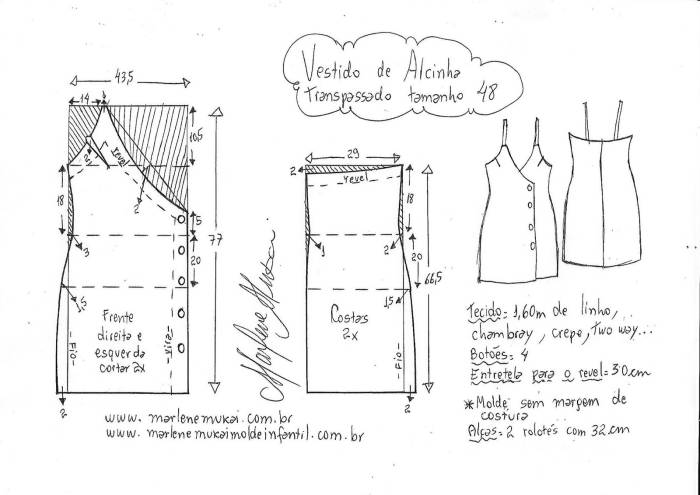 Vestido de Alcinha
Transpassado tamanho 48
43,5
14
10,5
2
revel
2
5
18
77
20
3
5
Frente
direita e
esquerda
cortar 2x
Fio
Vira
2
29
2
revel
18
1
2
20
66,5
1,5
Costas
2x
Fio
2
Marlene Mukai
Tecido: 1,60m de linho,
chambray, crepe, two way...
Botões: 4
Entretela para o revel: 30cm
* Molde sem margem de
costura
Alças: 2 rolotês com 32cm
www.marlenemukai.com.br
www.marlenemukaimoldeinfantil.com.br